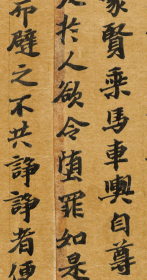 家賢乘馬車輿自尊
於人欲令墮罪如是
而避之不共諍諍者便